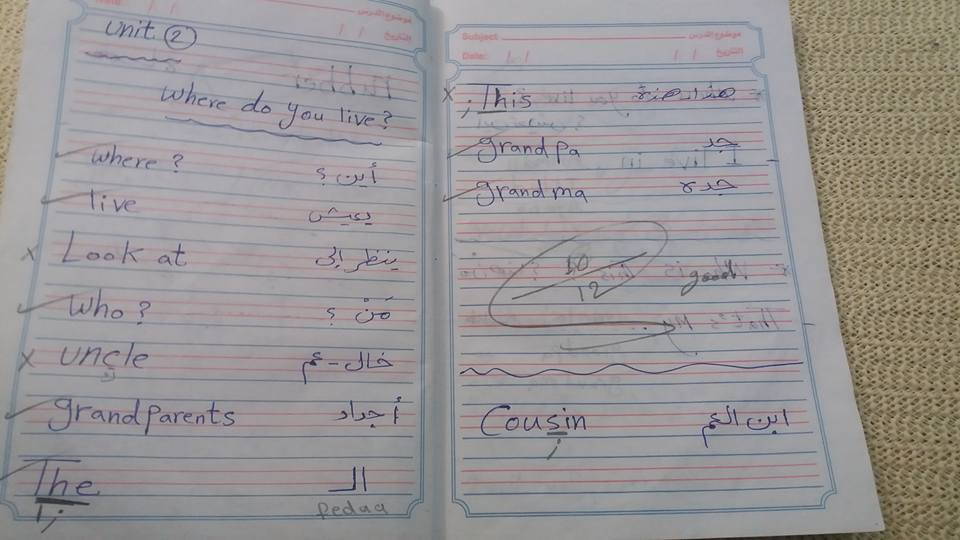 Unit 2
Where do you live?
where ? أين ؟
live يعيش
Look at ينظر إلى
Who ? مَنْ ؟
uncle خال - عم
grandparents أجداد
The الـ
ذ
pedaa
Subject موضوع الدرس
Date: / / التاريخ
This هذا - هذة
grandpa جد
grandma جدة
10
12
good
Cousin ابن العم
ز